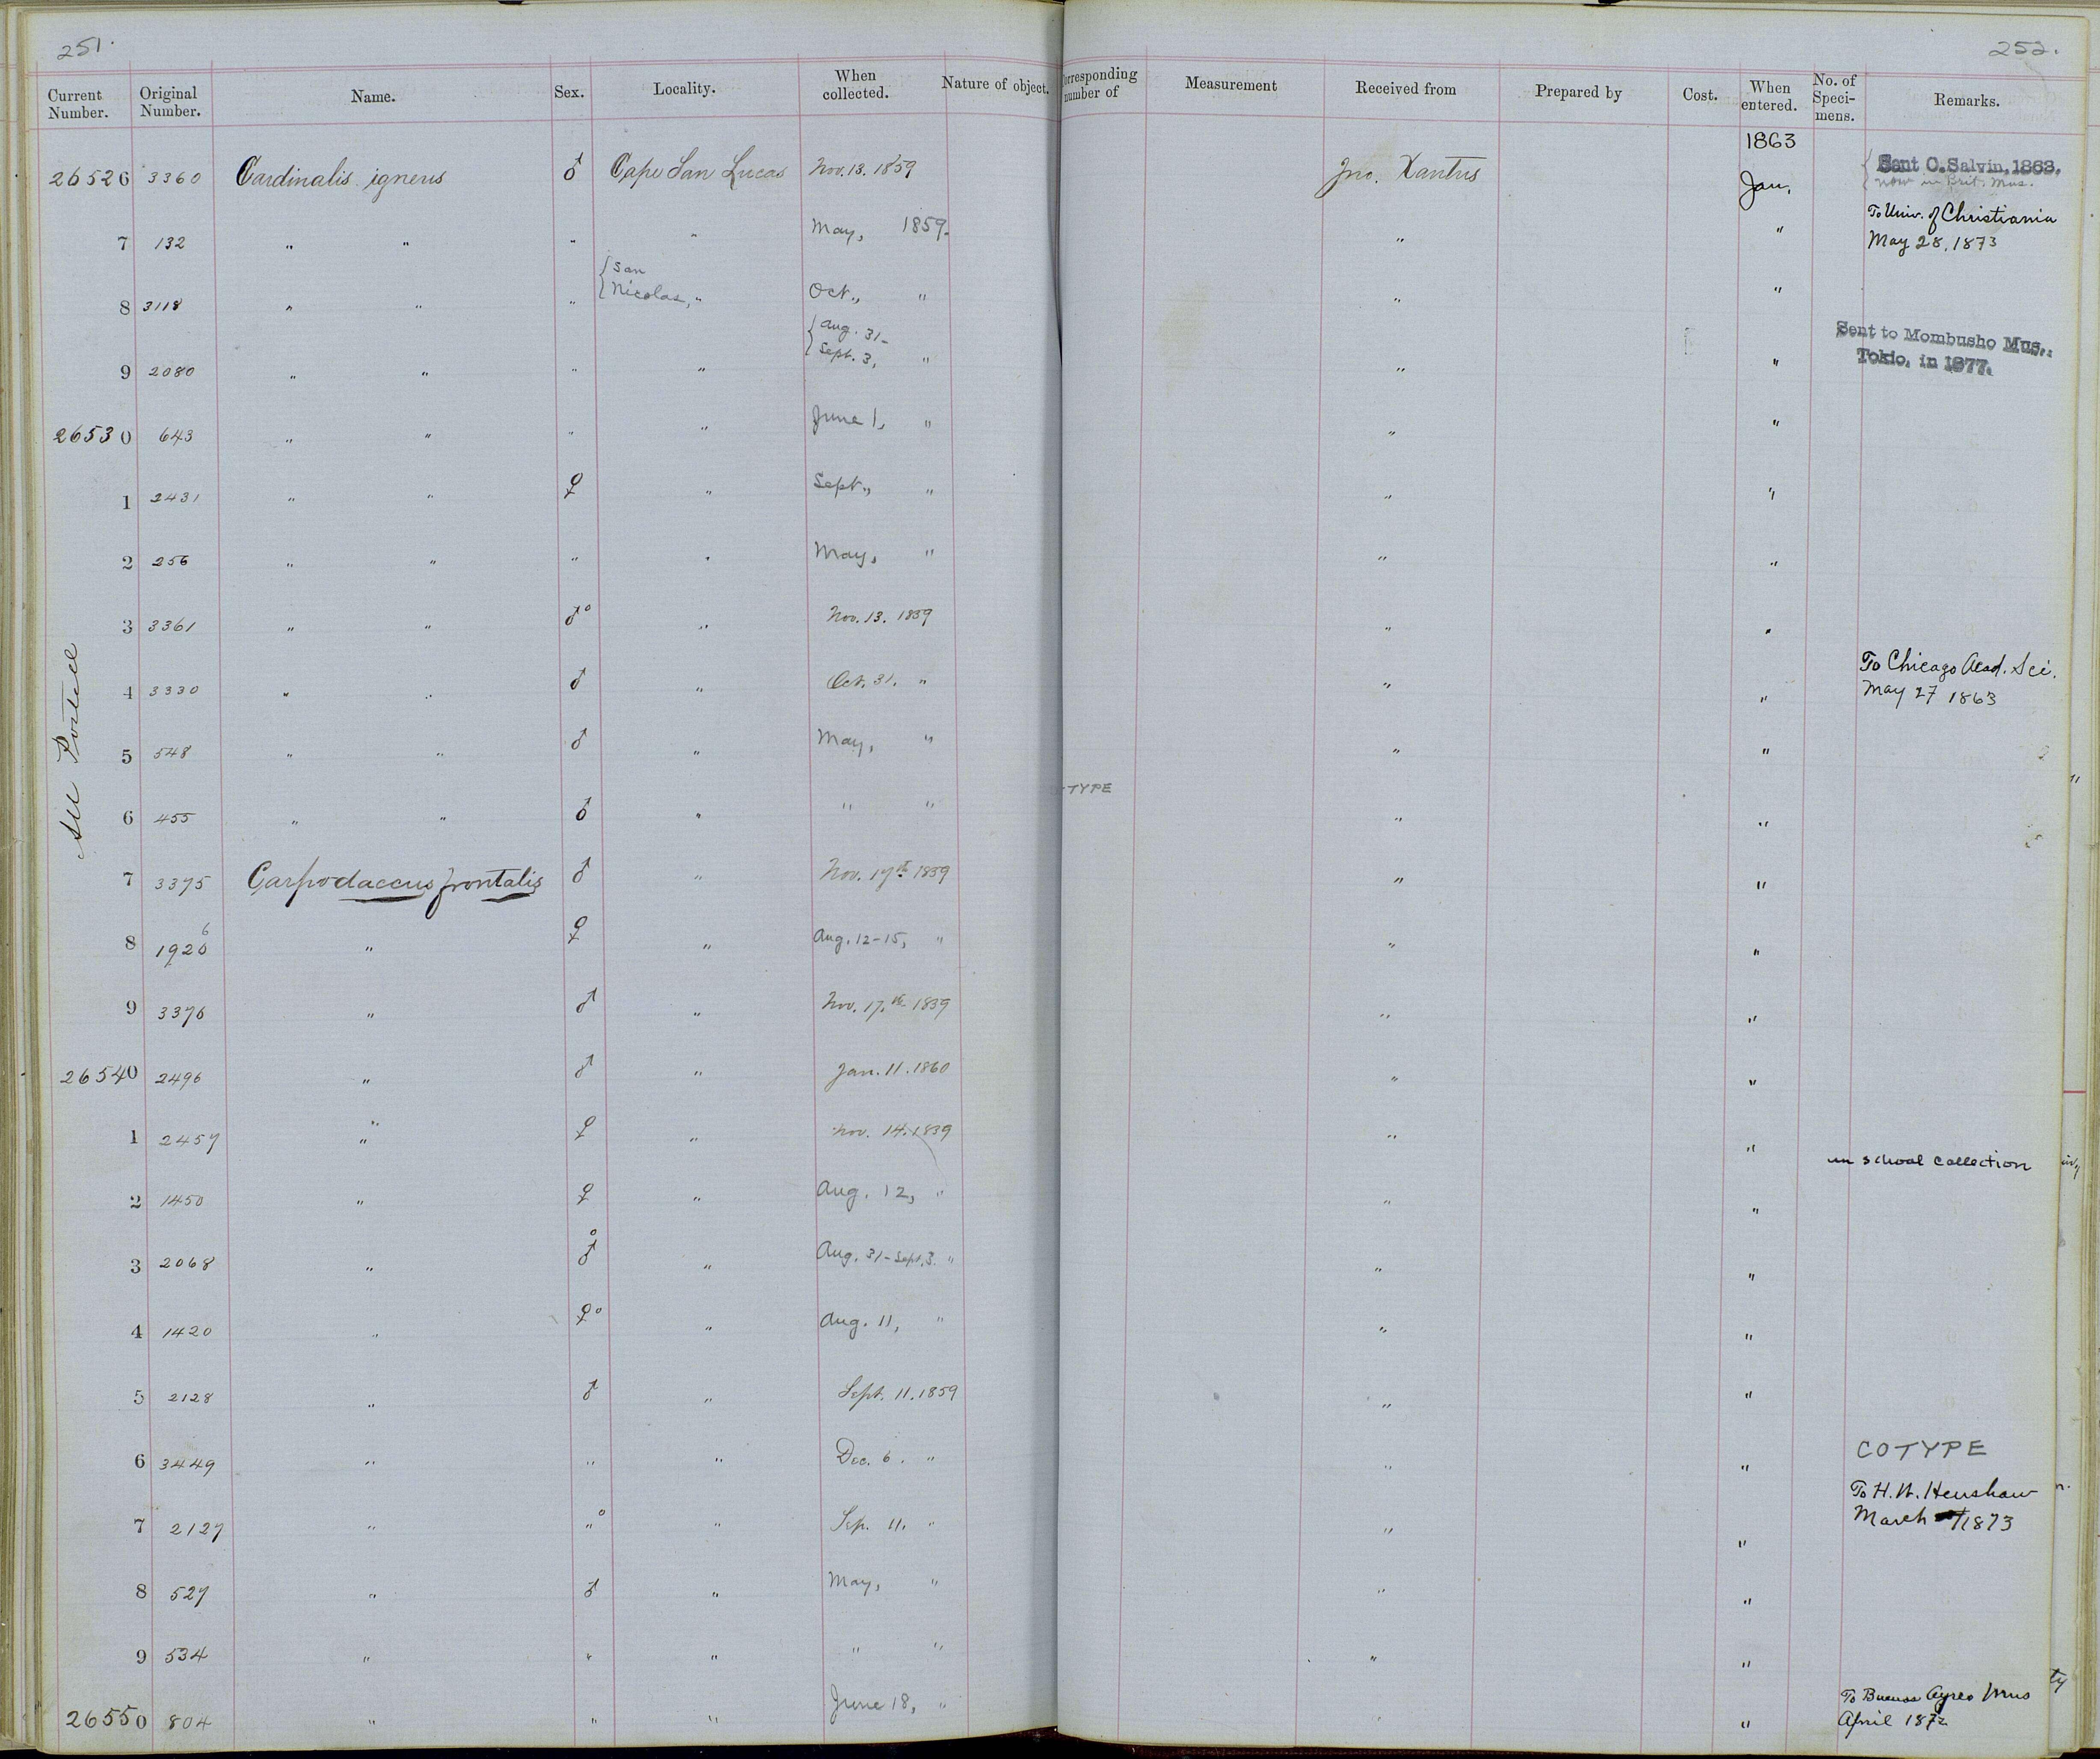 251.
252.
Current Number. Original Number. Name. Sex. Locality. When collected. Nature of object. Corresponding number of Measurement Received from Prepared by Cost. When entered. No. of Specimens. Remarks.
1863
26526 3360 Cardinalis igneus ♂ Cape San Lucas Nov. 13. 1859 Jno. Xantus Jan. { Sent O. Salvin, 1863. now in Brit. Mus.
7 132 " " " " May, 1859. " " To Univ. of Christiania May 28, 1873
8 3118 " " " { San Nicolas, " Oct., " " "
9 2080 " " " " { Aug. 31- Sept. 3, " " " Sent to Mombusho Mus., Tokio, in 1877.
26530 643 " " " " June 1, " " "
1 2431 " " ♀ " Sept., " " "
2 256 " " " " May, " " "
3 3361 " " ♂° " Nov. 13. 1859 " "
4 3330 " " ♂ " Oct. 31. " " " To Chicago Acad. Sci. May 27 1863
5 548 " " ♂ " May, " " "
6 455 " " ♂ " " " TYPE " "
7 3375 Carpodaccus frontalis ♂ " Nov. 17th 1859 " "
8 1926 6 " ♀ " Aug. 12-15, " " "
9 3376 " ♂ " Nov. 17.th 1859 " "
26540 2496 " ♂ " Jan. 11. 1860 " "
1 2457 " ♀ " Nov. 14. 1859 " " in school collection
2 1450 " ♀ " Aug. 12, " " "
3 2068 " ♂° " Aug. 31-Sept. 3. " " "
4 1420 " ♀° " Aug. 11, " " "
5 2128 " ♂ " Sept. 11. 1859 " "
6 3449 " " " Dec. 6. " " " COTYPE
7 2127 " "° " Sep. 11. " " " To H. W. Henshaw March 1873
8 527 " ♂ " May, " " "
9 534 " " " " " " "
26550 804 " " " June 18, " " " To Buenos Ayres Mus April 1872
All Posted